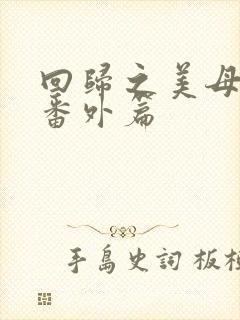 回歸之美母
番外篇
手島史詞 板極